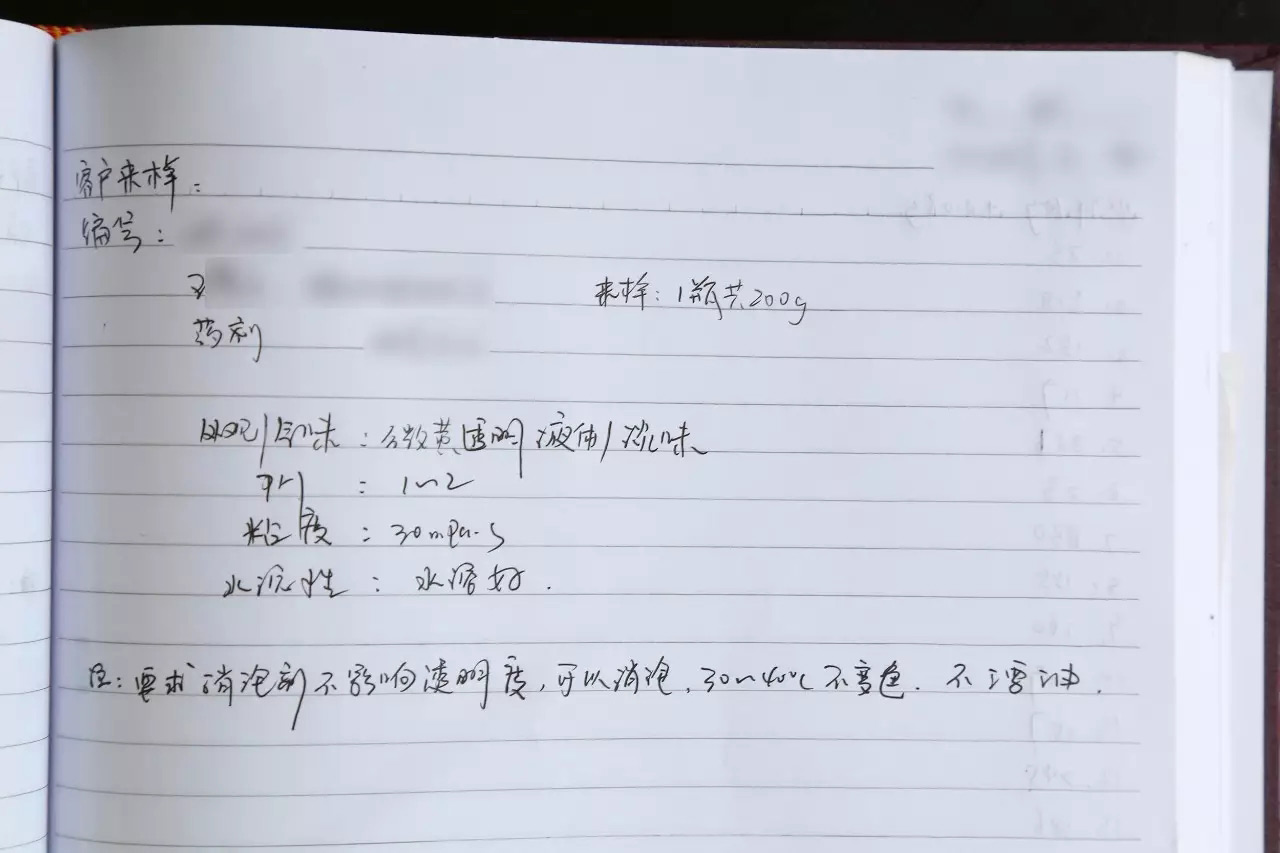 客户来样:
编号:
来样: 1瓶共200g
药剂
外观/气味 : 微黄透明液体/淡味
PH : 1~2
粘度 : 30mPa·s
水溶性 : 水溶好.
注: 要求消泡剂不影响透明度, 可以消泡, 30~40℃不变色. 不漂油.